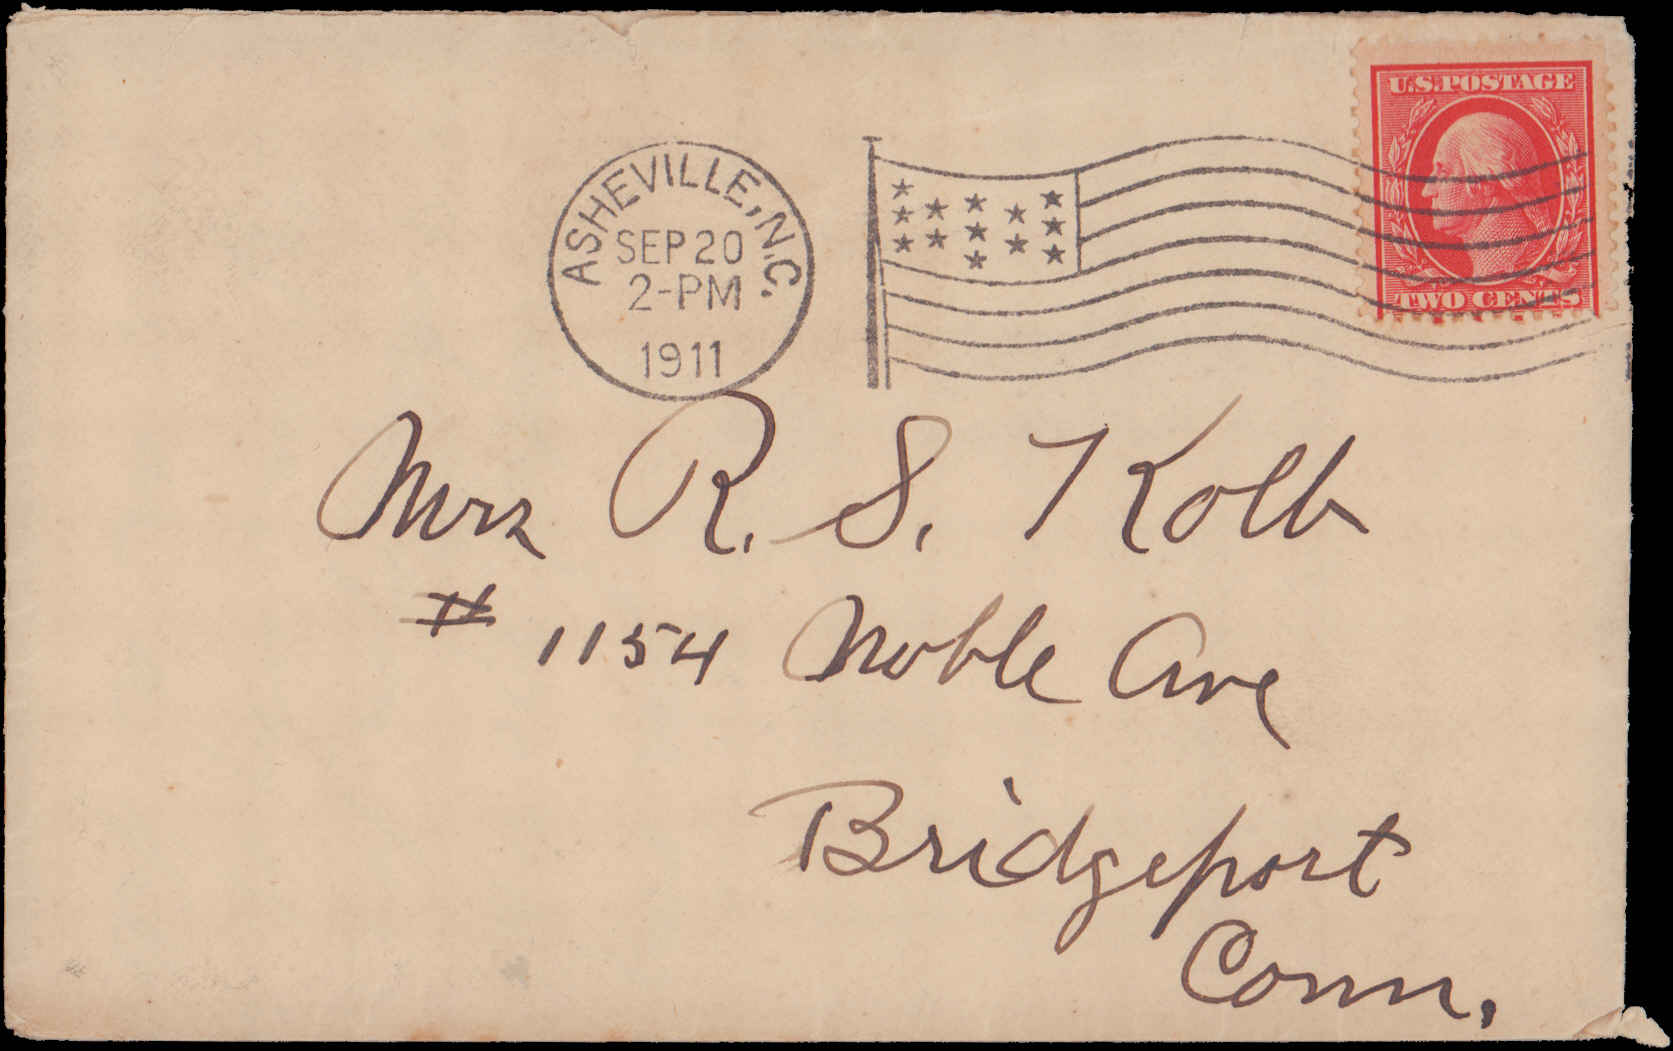 U.S. POSTAGE
TWO CENTS
ASHEVILLE, N.C.
SEP 20
2-PM
1911
Mrs R. S. Kolb
# 1154 Noble Ave
Bridgeport
Conn.